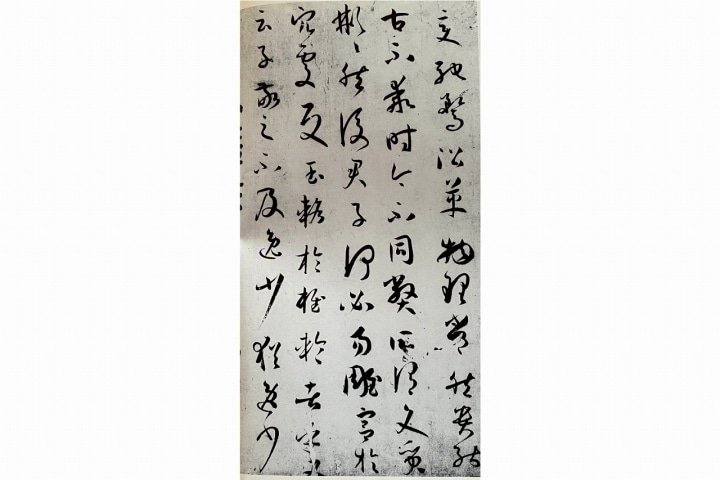 變馳騖沿革物理常然貴能
古不乖時今不同弊所謂文質
彬〻然後君子何必易雕宮於
穴處反玉輅於椎輪者乎又
云子敬之不及逸少猶逸少